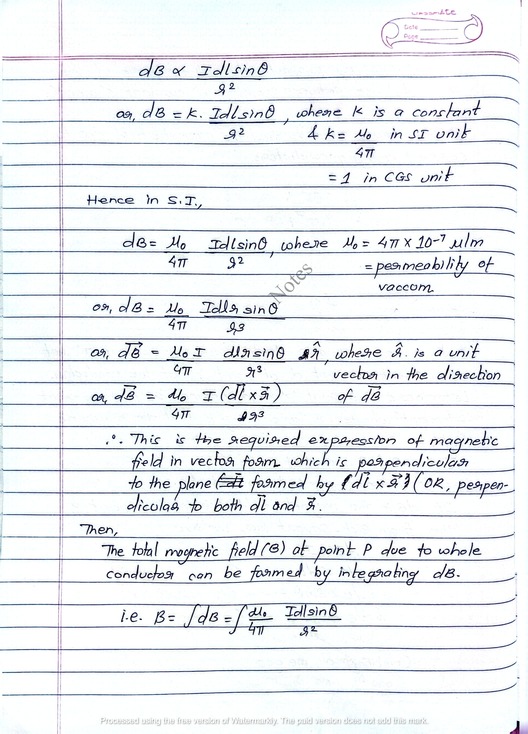 classmate
Date
Page
dB ∝ Idlsinθ / r²
or, dB = k. Idlsinθ / r², where k is a constant
& k = μ₀ / 4π in SI unit
= 1 in CGS unit
Hence in S.I.,
dB = μ₀ / 4π Idlsinθ / r², where μ₀ = 4π × 10⁻⁷ μ/m
= permeability of
vaccom
Notes
or, dB = μ₀ / 4π Idlr sinθ / r³
or, dB⃗ = μ₀ I / 4π dlr sinθ / r³ r̂, where r̂ is a unit
vector in the direction
or, dB⃗ = μ₀ / 4π I (dl⃗ × r⃗) / r³ of dB⃗
∴ This is the required expression of magnetic
field in vector form which is perpendicular
to the plane formed by (dl⃗ × r⃗) (OR, perpen-
dicular to both dl⃗ and r⃗.
Then,
The total magnetic field (B) at point P due to whole
conductor can be formed by integrating dB.
i.e. B = ∫dB = ∫ μ₀ / 4π Idlsinθ / r²
Processed using the free version of Watermarkly. The paid version does not add this mark.